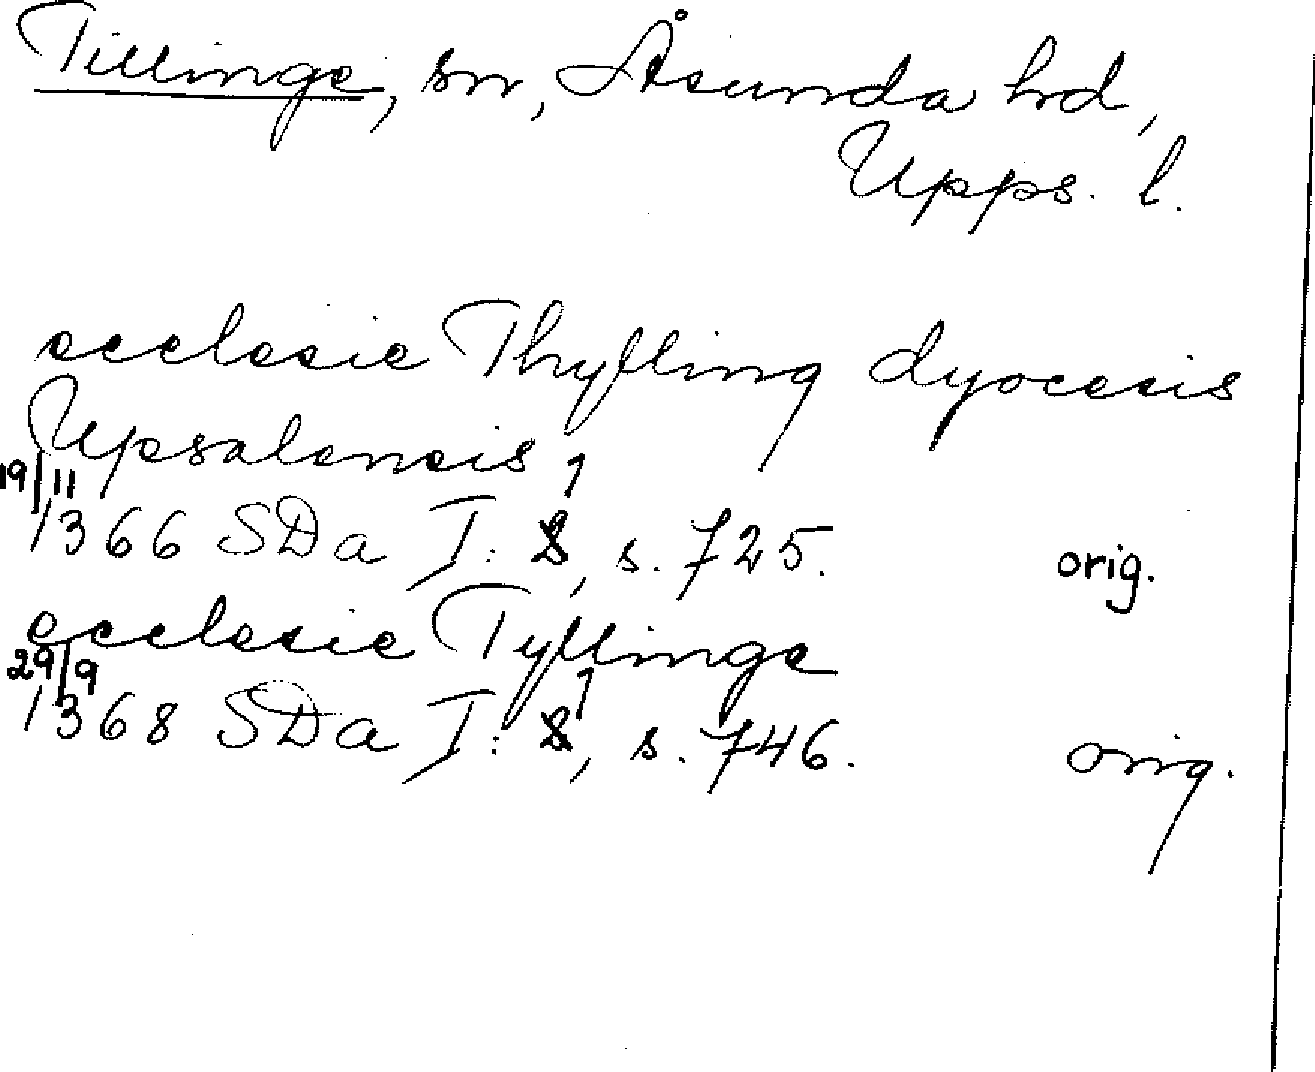 Tillinge, sn, Åsunda hd,
Upps. l.
ecclesie Thylling dyocesis
Upsalensis
19/11
1366 SDa I: 1, s. 725. orig.
ecclesie Tyllinge
29/9
1368 SDa I: 1, s. 746. orig.